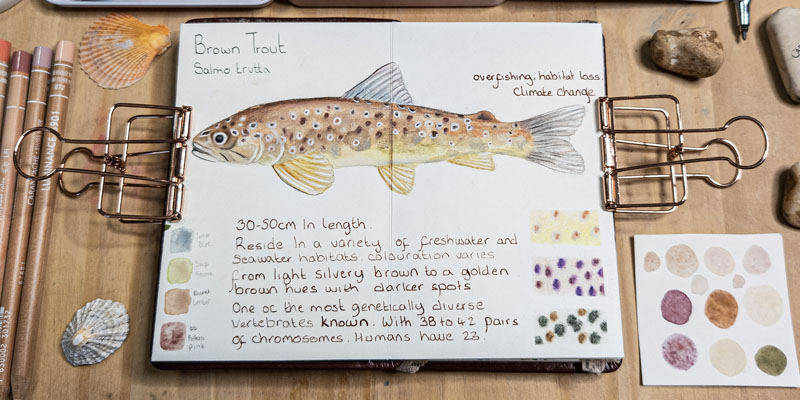 Brown Trout
Salmo trutta
overfishing, habitat loss.
Climate change
30-50cm In length.
Reside In a variety of freshwater and
seawater habitats. colouration varies
from light silvery brown to a golden
brown hues with darker spots
One of the most genetically diverse
vertebrates known. With 38 to 42 pairs
of chromosomes. Humans have 23.
Burnt
Umber
Potters
Pink
LUMINANCE